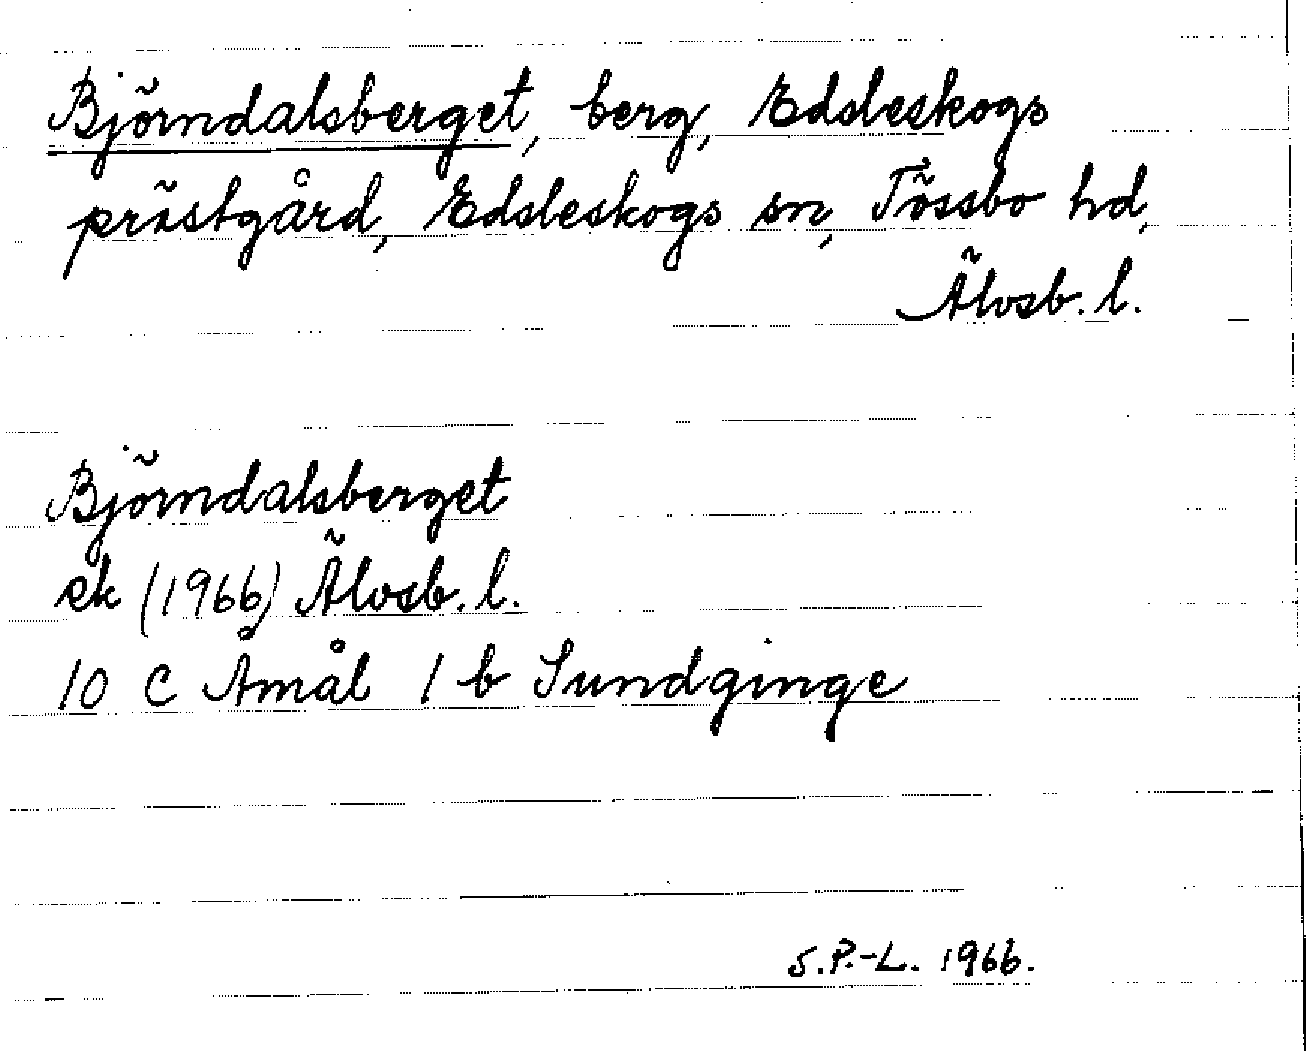 Björndalsberget, berg, Edsleskogs
prästgård, Edsleskogs sn, Tössbo hd,
Älvsb. l.
Björndalsberget
ek (1966) Älvsb. l.
10 C Åmål 1 b Sundginge
S.P.-L. 1966.